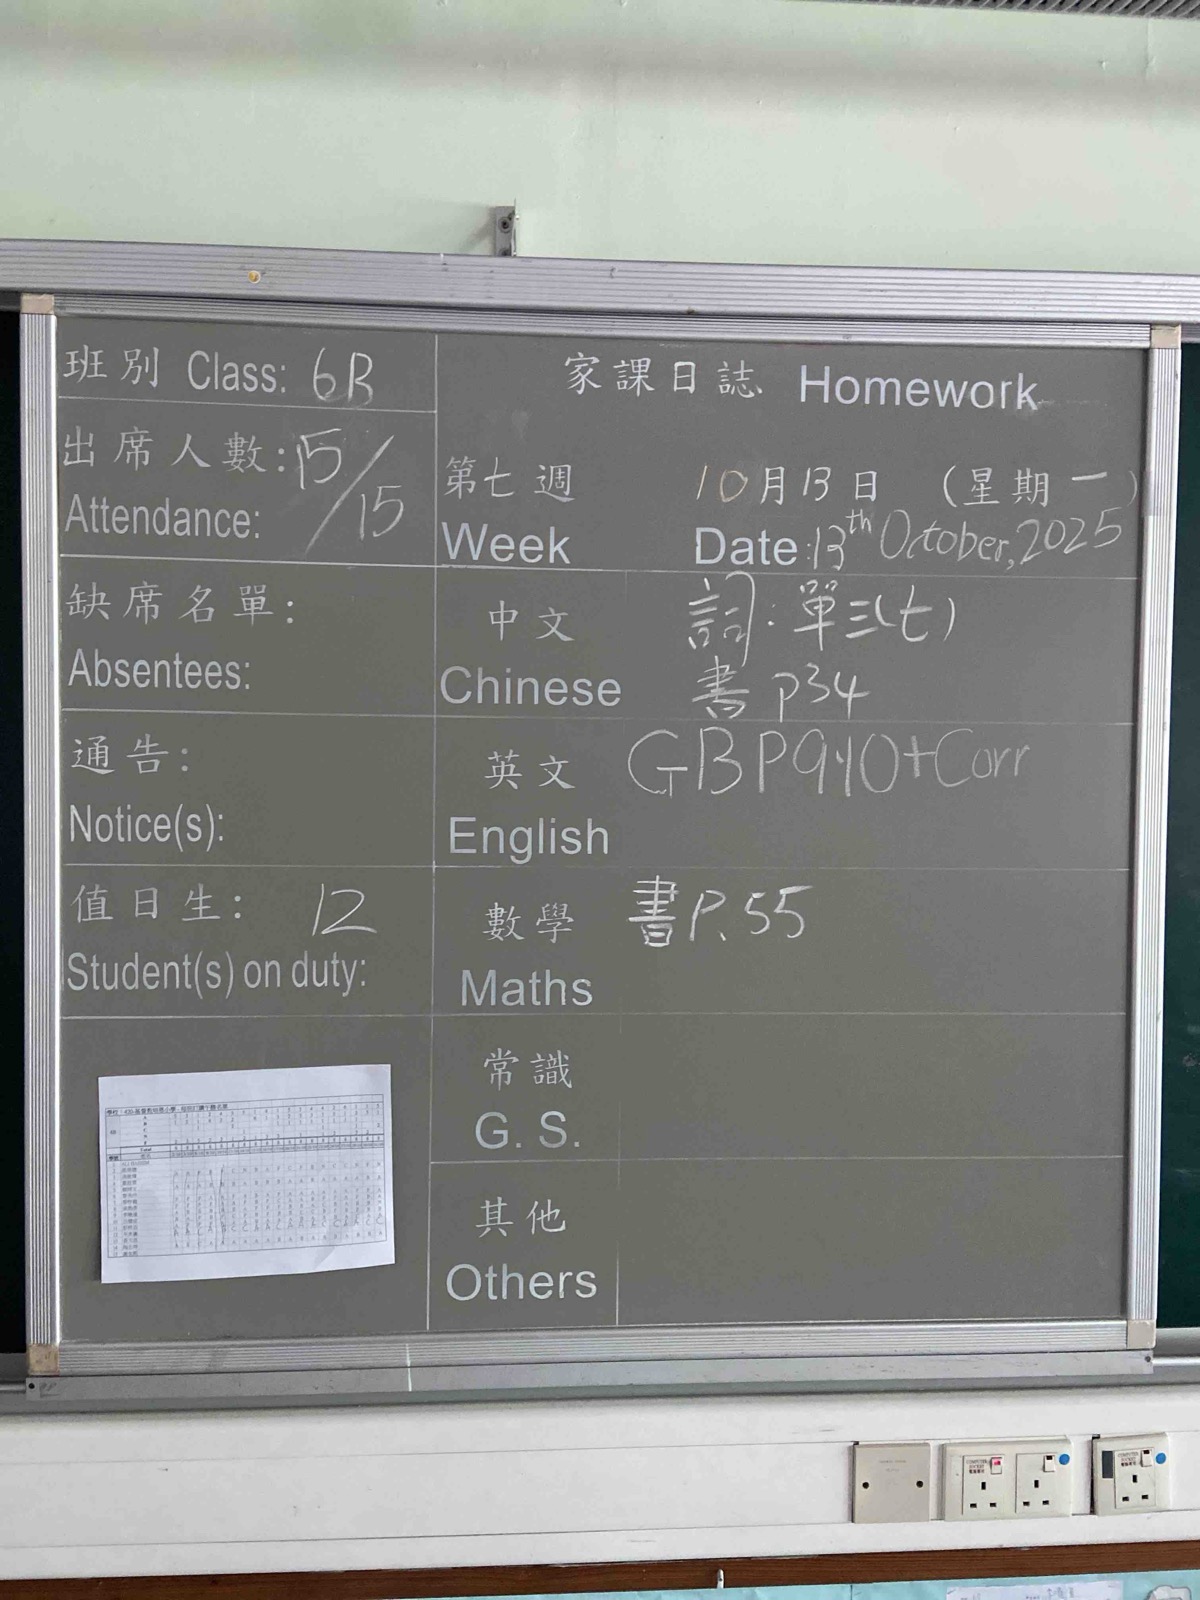 班別 Class: 6B
出席人數: 15/15
Attendance:
缺席名單:
Absentees:
通告:
Notice(s):
值日生: 12
Student(s) on duty:
家課日誌 Homework
第七週 10月13日 (星期一)
Week Date: 13th October, 2025
中文 詞:單三(七)
Chinese 書 P34
英文 GB P9-10+Corr
English
數學 書P.55
Maths
常識
G. S.
其他
Others
Total